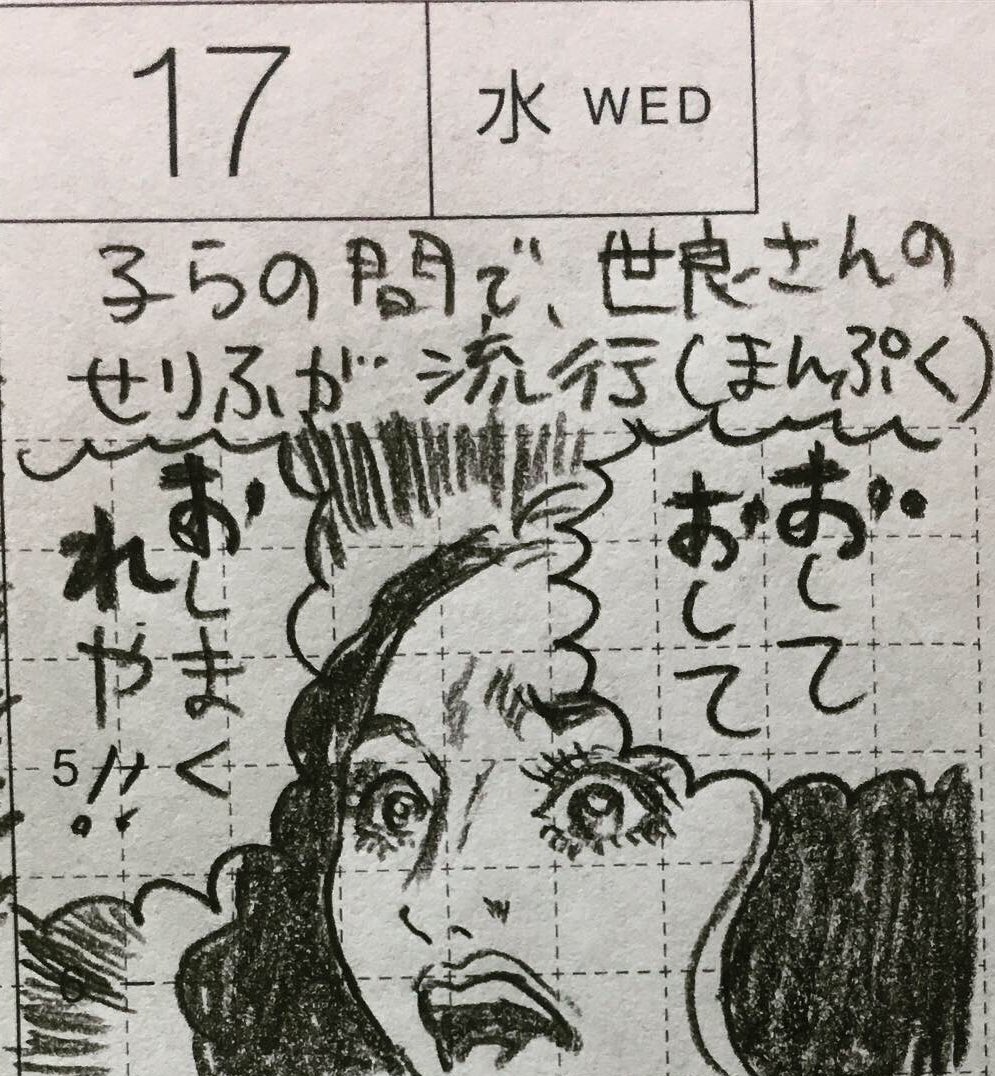 17
水 WED
子らの間で、世良さんの
せりふが流行(まんぷく)
おして
おして
おしまく
れや!!
5
6